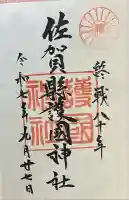 終戦八十年
佐賀縣護國神社
令和七年九月廿七日
護國
神社